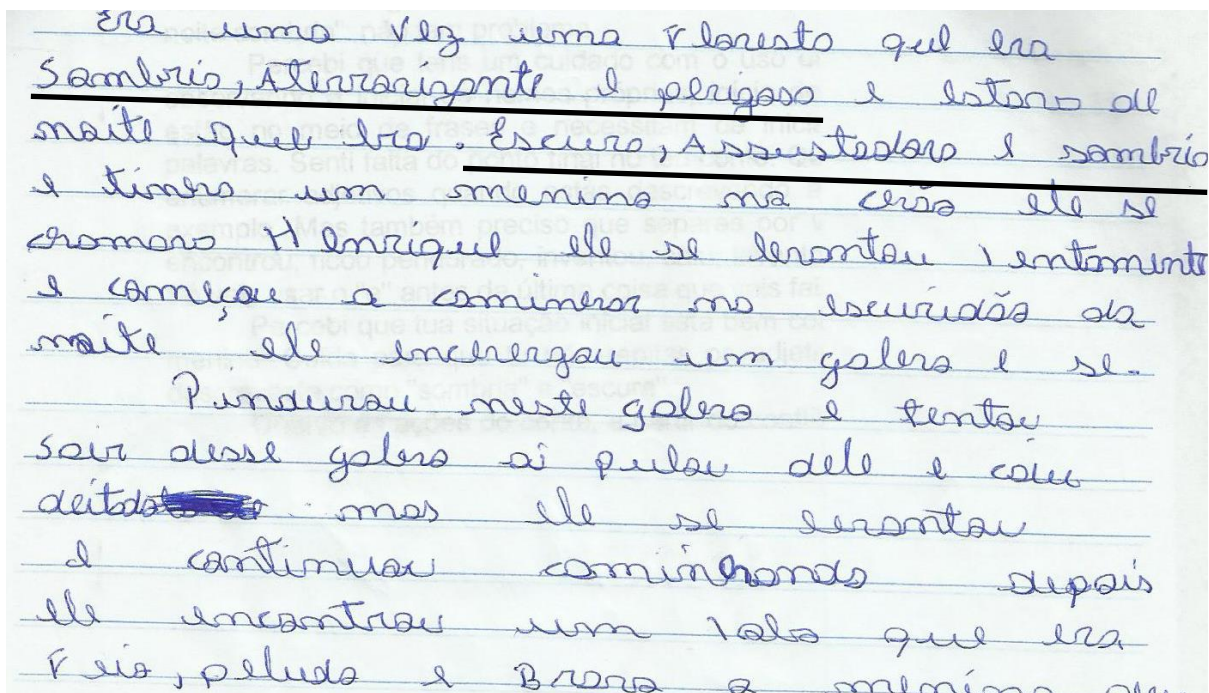 Era uma vez uma Floresta que era
Sombria, Aterrorizante e perigosa e estava de
noite que era. Escura, Assustadora e sombria
e tinha um menino no chão ele se
chamava Henrique ele se levantou lentamente
e começou a caminhar na escuridão da
noite ele enchergou um galho e se.
Pindurou neste galho e tentou
Sair desse galho ai pulou dele e caiu
deitado mas ele se levantou
e continuou caminhando depois
ele encontrou um lobo que era
Feio, peludo e Bravo o menino